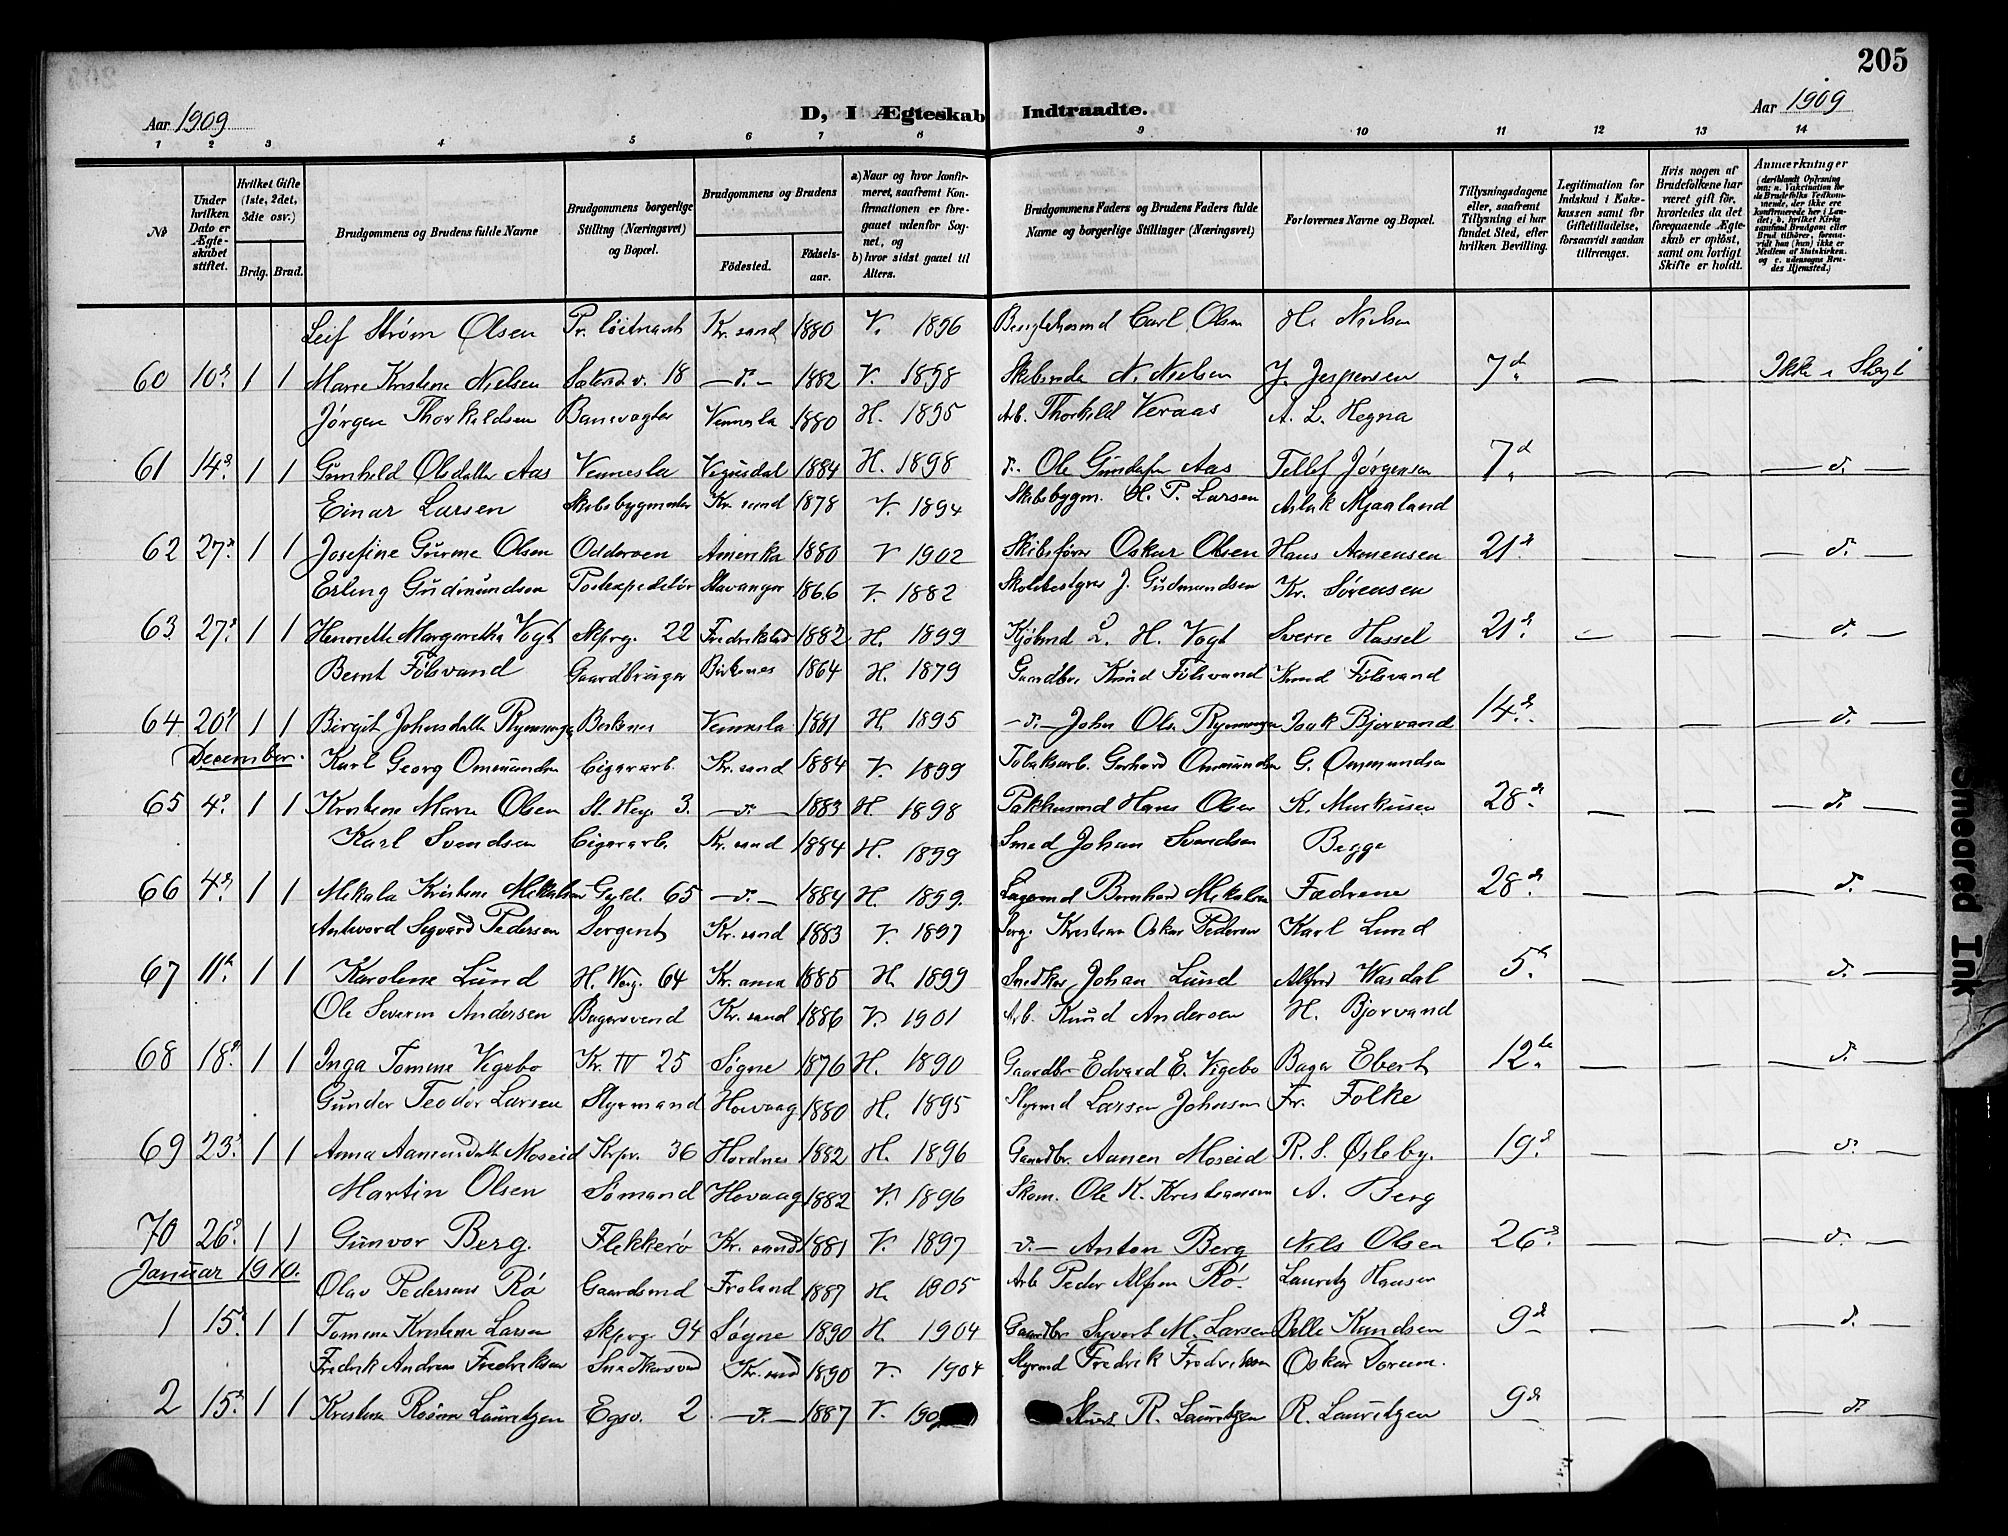 205
Aar 1909
D, I Ægteskab Indtraadte.
Aar 1909
1 2 3 4 5 6 7 8 9 10 11 12 13 14
№
Under hvilken Dato er Ægteskabet stiftet.
Hvilket Gifte (1ste, 2det, 3die osv.)
Brdg. Brud.
Brudgommens og Brudens fulde Navne
Brudgommens borgerlige Stilling (Næringsvei) og Bopæl.
Brudgommens og Brudens
Födested.
Födselsaar.
a) Naar og hvor konfirmeret, saafremt Konfirmationen er foregaaet udenfor Sognet, og
b) hvor sidst gaaet til Alters.
Brudgommens Faders og Brudens Faders fulde Navne og borgerlige Stillinger (Næringsvei)
Forlovernes Navne og Bopæl.
Tillysningsdagene eller, saafremt Tillysning ei har fundet Sted, efter hvilken Bevilling.
Legitimation for Indskud i Enkekassen samt for Giftetilladelse, forsaavidt saadan tiltrænges.
Hvis nogen af Brudefolkene har været gift för, hvorledes da det foregaaende Ægteskab er oplöst, samt om lovligt Skifte er holdt.
Anmærkninger
(deriblandt Oplysning om: a. Vakcination for de Brudefolks Vedkommende, der ikke ere konfirmerede her i Landet; b. hvilket Kirkesamfund Brudgom eller Brud tilhörer, forsaavidt han (hun) ikke er Medlem af Statskirken, og c. udensogns Brudes Hjemsted.)
Leif Strøm Olsen Pr. löitnant Kr. sand 1880 V. 1896 Carl Olsen H. Nielsen
60 10d 1 1 Marie Kristine Nielsen 18 — d. — 1882 V. 1898 N. Nielsen J. Jespersen 7d — — Ikke i Slægt
Jørgen Thorkildsen Banevogter Vennesla 1880 H. 1895 Arb. Thorkild Veraas A. L. Hegna
61 14d 1 1 Gunhild Olsdatter Aas Vennesla Vegusdal 1884 H. 1898 d. Ole Aas Tellef Jørgensen 7d — — — d. —
Einar Larsen Skibsbygmester Kr. sand 1878 V. 1894 Skibsbygm. O. P. Larsen Aslak Mjaaland
62 27d 1 1 Josefine Olsen Oddernes Amerika 1880 V 1902 Skibsfører Oskar Olsen Hans Aanensen 21d — — — d. —
Erling Gudmundsen Postexpeditör Stavanger 1866 V. 1882 Skolebestyrer J. Gudmundsen Kr. Sörensen
63 27d 1 1 Henriette Margarethe Vogt Skprg. 22 Fredrikstad 1882 H. 1899 Kjöbmd L. H. Vogt Sverre Hassel 21d — — — d. —
Bernt Fölsvand Gaardbruger Birkenes 1864 H. 1879 Gaardbr. Knud Fölsvand Knud Fölsvand
64 20d 1 1 Birgit Johnsdatter Birkenes Vennesla 1881 H. 1895 — d. — John Ols. Isak Bjorvand 14d — — — d. —
December.
Karl Georg Ommundsen Cigararb. Kr. sand 1884 V. 1899 Tobaksarb. Gerhard Ommundsen G. Ommundsen
65 4d 1 1 Kristine Marie Olsen St. Heg. 3. — d. — 1883 H. 1898 Pakhusmd Hans Olsen K. Markusen 28d — — — d. —
Karl Svendsen Cigararb. Kr. sand 1884 H. 1899 Smed Johan Svendsen Begge
66 4d 1 1 Mikala Kristine Mikalsen Gyld. 65 — d. — 1884 H. 1899. Lagermd Bernhard Mikalsen Fædrene 28d — — — d. —
Sigvard Pedersen Sergent Kr. sand 1883 V. 1897 Serg. Kristian Oskar Pedersen Karl Lund
67 11te 1 1 Karoline Lund H. Werg. 64 Kr. ania 1885 H. 1899 Snedker Johan Lund Alfred Wasdal 5te — — — d. —
Ole Severin Andersen Bagersvend Kr. sand 1886 V. 1901 Arb. Knud Andersen H. Bjorvand
68 18d 1 1 Inga Tomine Vigebo Kr. IV 25 Søgne 1876 H. 1890 Gaardbr Edvard E. Vigebo Bager Ebert 12te — — — d. —
Gunder Teodor Larsen Styrmand Høvaag 1880 H. 1895 Styrmd Larsen Johnsen Fr. Folke
69 23d 1 1 Anna Aanensdatt. Moseid Krpr. 36 Hordnes 1882 H. 1896 Gaardbr. Aanen Moseid R. S. Østeby. 19d — — — d. —
Martin Olsen Sömand Høvaag 1882 V. 1896 Skom. Ole K. Kristiansen A. Berg
70 26d 1 1 Gunvor Berg. Flekkerö Kr. sand 1881 V. 1897 d. — Anton Berg Nils Olsen 26d — — — d. —
Januar 1910.
Olav Pedersens Rö Gaardsmd Froland 1887 H. 1905 Arb Peder Alfsen Rö. Lauritz Hansen
1 15d 1 1 Tomine Kristine Larsen Skprg. 94 Søgne 1890 H. 1904 Gaardbr Syvert M. Larsen Kundsen 9d — — — d. —
Fredrik Andreas Fredriksen Snedkersvd Kr. sand 1890 V. 1904 Styrmd Fredrik Fredriksen Oskar Dorum.
2 15d 1 1 Kristine Lauritzen Egsv. 2 — d. — 1887 V. R. Lauritzen R. Lauritzen 9d — — — d. —
Smeared Ink